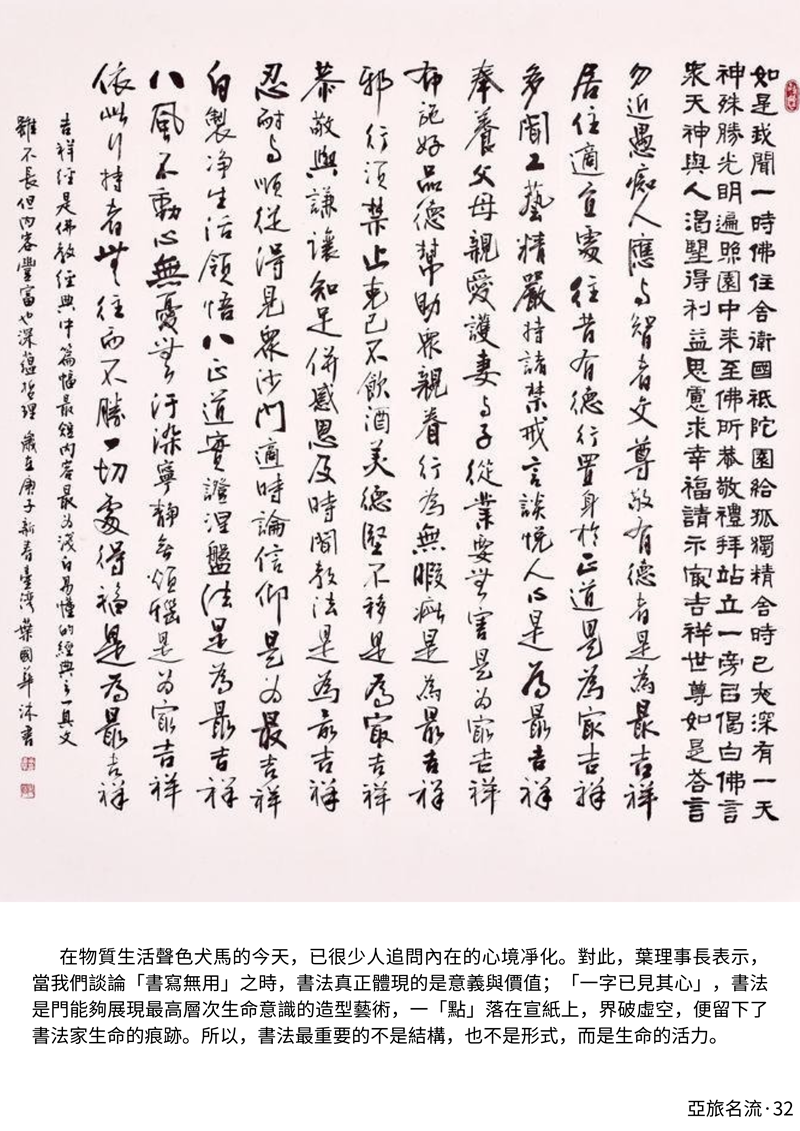 如是我聞一時佛住舍衛國祗陀園給孤獨精舍時已夜深有一天
神殊勝光明遍照園中来至佛所恭敬禮拜站立一旁以偈白佛言
眾天神與人渴望得利益思慮求幸福請示最吉祥世尊如是答言
勿近愚痴人應與智者交尊敬有德者是為最吉祥
居住適宜處往昔有德行置身於正道是為最吉祥
多聞工藝精嚴持諸禁戒言談悅人心是為最吉祥
奉養父母親愛護妻與子從業要無害是為最吉祥
布施好品德幫助眾親眷行為無瑕疵是為最吉祥
邪行須禁止克己不飲酒美德堅不移是為最吉祥
恭敬與謙讓知足併感恩及時聞教法是為最吉祥
忍耐與順從得見眾沙門適時論信仰是為最吉祥
自製净生活領悟八正道實證涅盤法是為最吉祥
八風不動心無憂無汙染寧靜無煩惱是为最吉祥
依此行持者無往而不勝一切處得福是為最吉祥
吉祥經是佛教經典中篇幅最短内容最为淺白易懂的經典之一其文
雖不長但内容豐富也深蘊哲理 歲在庚子新春臺灣葉國華沐書
在物質生活聲色犬馬的今天，已很少人追問內在的心境凈化。對此，葉理事長表示，
當我們談論「書寫無用」之時，書法真正體現的是意義與價值；「一字已見其心」，書法
是門能夠展現最高層次生命意識的造型藝術，一「點」落在宣紙上，界破虛空，便留下了
書法家生命的痕跡。所以，書法最重要的不是結構，也不是形式，而是生命的活力。
亞旅名流·32